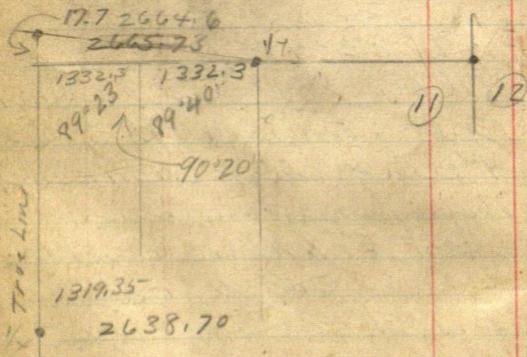 17.7 2664.6
2665.73
1/4
1332.3 1332.3
89°23' 89°40'
11 12
90°20'
True Line
1319.35
2638.70